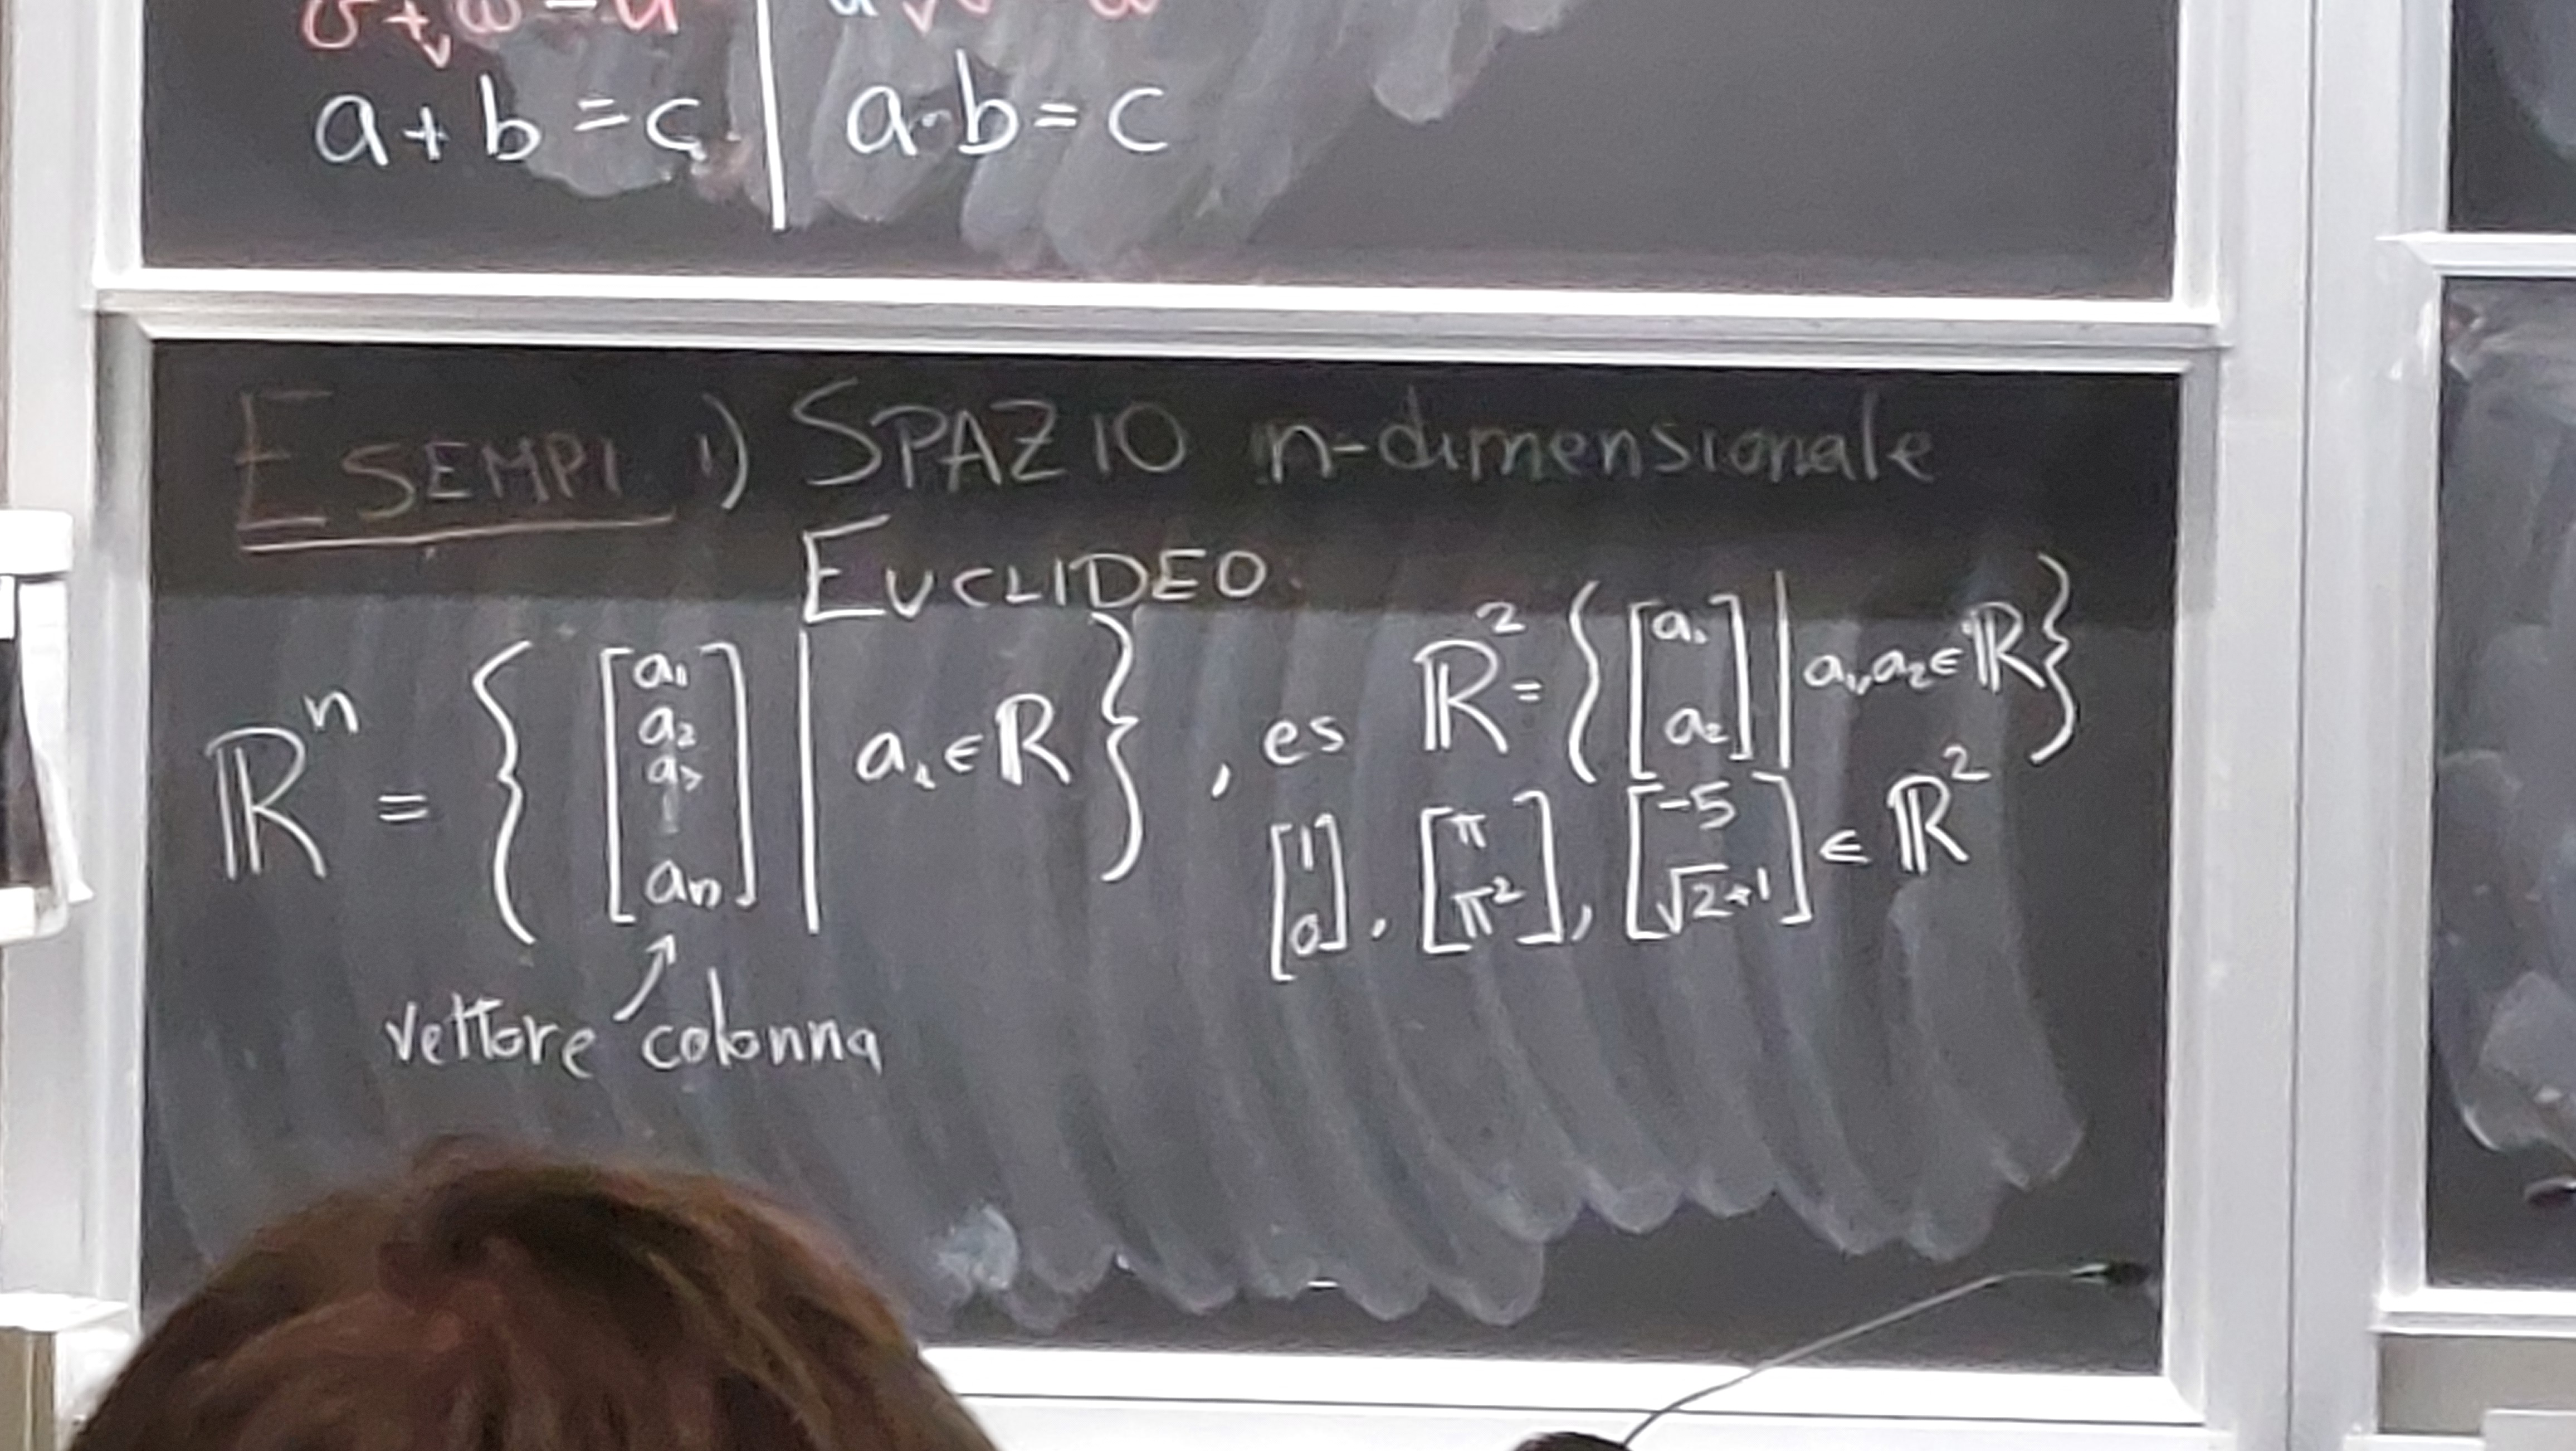 a + b = c | a · b = c
ESEMPI 1) SPAZIO n-dimensionale
EUCLIDEO
ℝⁿ = { [a₁ a₂ a₃ ⋮ aₙ] | aᵢ ∈ ℝ } , es ℝ² = { [a₁ a₂] | a₁, a₂ ∈ ℝ }
[1 0], [π π²], [-5 √2+1] ∈ ℝ²
vettore colonna